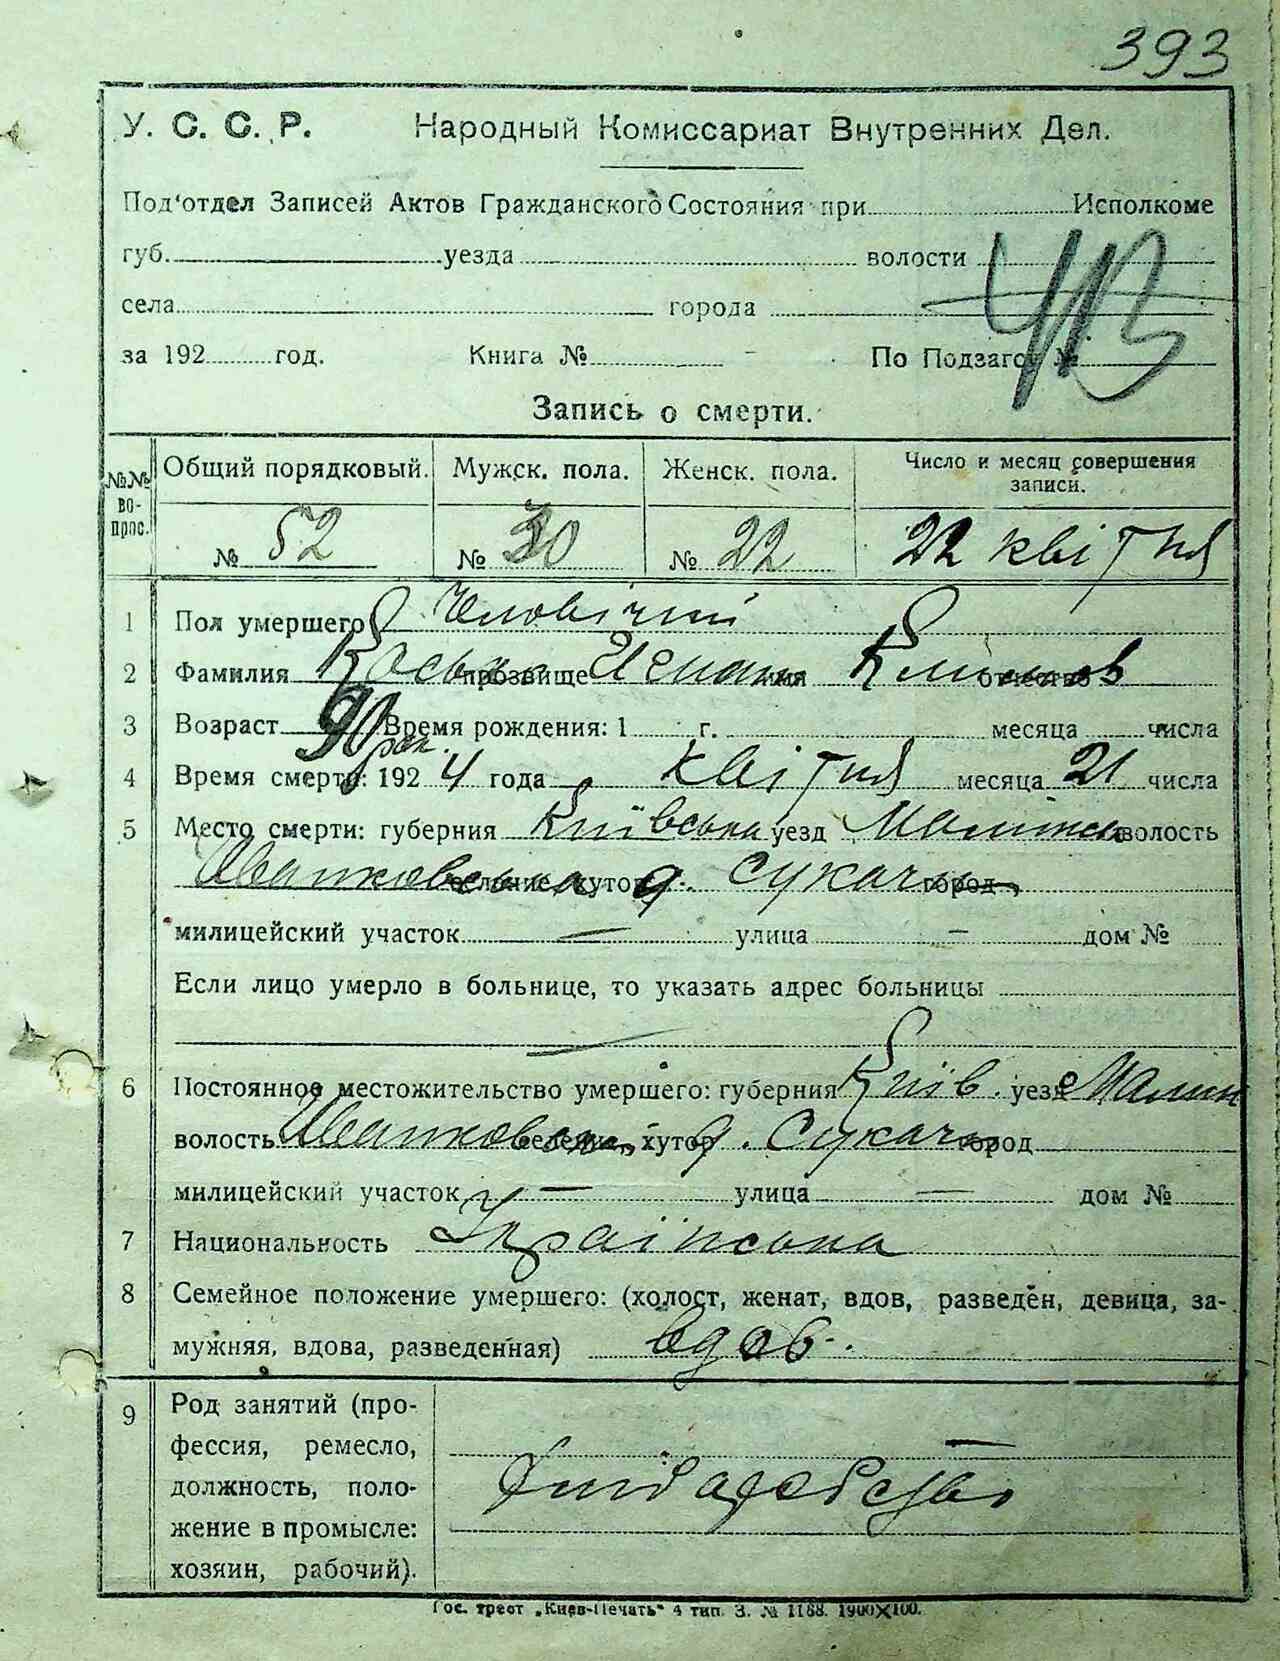 393
У. С. С. Р. Народный Комиссариат Внутренних Дел.
Под'отдел Записей Актов Гражданского Состояния при Исполкоме
губ. уезда волости
села города
за 192 год. Книга № По Подзагсу №
Запись о смерти.
№№ во- прос. Общий порядковый. Мужск. пола. Женск. пола. Число и месяц совершения записи.
№ 52 № 30 № 22 22 квітня
1 Пол умершего Чловічий
2 Фамилия прозвище имя отчество
3 Возраст 90 рок. Время рождения: 1 г. месяца числа
4 Время смерти: 1924 года квітня месяца 21 числа
5 Место смерти: губерния Київська уезд Малинск волость
Иванковська селение, хутор д. Сукачи город
милицейский участок — улица — дом №
Если лицо умерло в больнице, то указать адрес больницы
—
6 Постоянное местожительство умершего: губерния Київ. уезд Малин
волость Иванковська селение, хутор д. Сукачи город
милицейский участок — улица — дом №
7 Национальность Українська
8 Семейное положение умершего: (холост, женат, вдов, разведен, девица, за-
мужняя, вдова, разведенная) вдов.
9 Род занятий (про-
фессия, ремесло,
должность, поло-
жение в промысле:
хозяин, рабочий).
Гос. трест „Киев-Печать" 4 тип. З. № 1188. 1900×100.